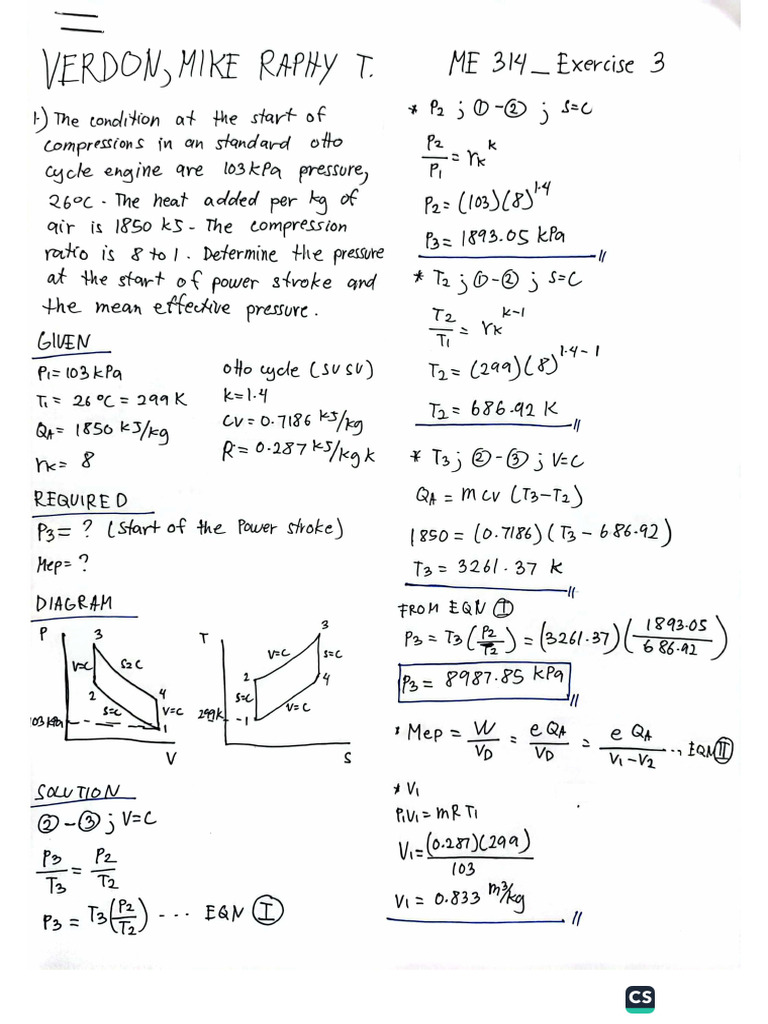 VERDON, MIKE RAPHY T.
ME 314_Exercise 3
1.) The condition at the start of
compressions in an standard otto
cycle engine are 103kPa pressure,
26°C. The heat added per kg of
air is 1850 kJ. The compression
ratio is 8 to 1. Determine the pressure
at the start of power stroke and
the mean effective pressure.
GIVEN
P1=103kPa
T1= 26°C = 299 K
QA= 1850 kJ/kg
rk= 8
otto cycle (SVSV)
k=1.4
CV=0.7186 kJ/kg
R=0.287 kJ/kg K
REQUIRED
P3= ? (Start of the Power stroke)
Mep= ?
DIAGRAM
P
3
V=C
S=C
2
S=C
4
V=C
1
103 kPa
V
T
3
V=C
S=C
2
4
S=C
V=C
299K
1
S
SOLUTION
②-③; V=C
P3/T3 = P2/T2
P3 = T3(P2/T2) --- EQN Ⅰ
* P2 ; ①-② ; S=C
P2/P1 = rk^k
P2= (103)(8)^1.4
P3= 1893.05 kPa
* T2 ; ①-② ; S=C
T2/T1 = rk^k-1
T2= (299)(8)^1.4-1
T2= 686.92 K
* T3 ; ②-③ ; V=C
QA = m cv (T3-T2)
1850 = (0.7186)(T3 - 686.92)
T3 = 3261.37 K
FROM EQN Ⅰ
P3 = T3(P2/T2) = (3261.37)(1893.05/686.92)
P3= 8987.85 kPa
* Mep = W/VD = e QA/VD = e QA/V1-V2 ... EQN Ⅱ
* V1
P1V1 = mRT1
V1= (0.287)(299)/103
V1 = 0.833 m³/kg
CS